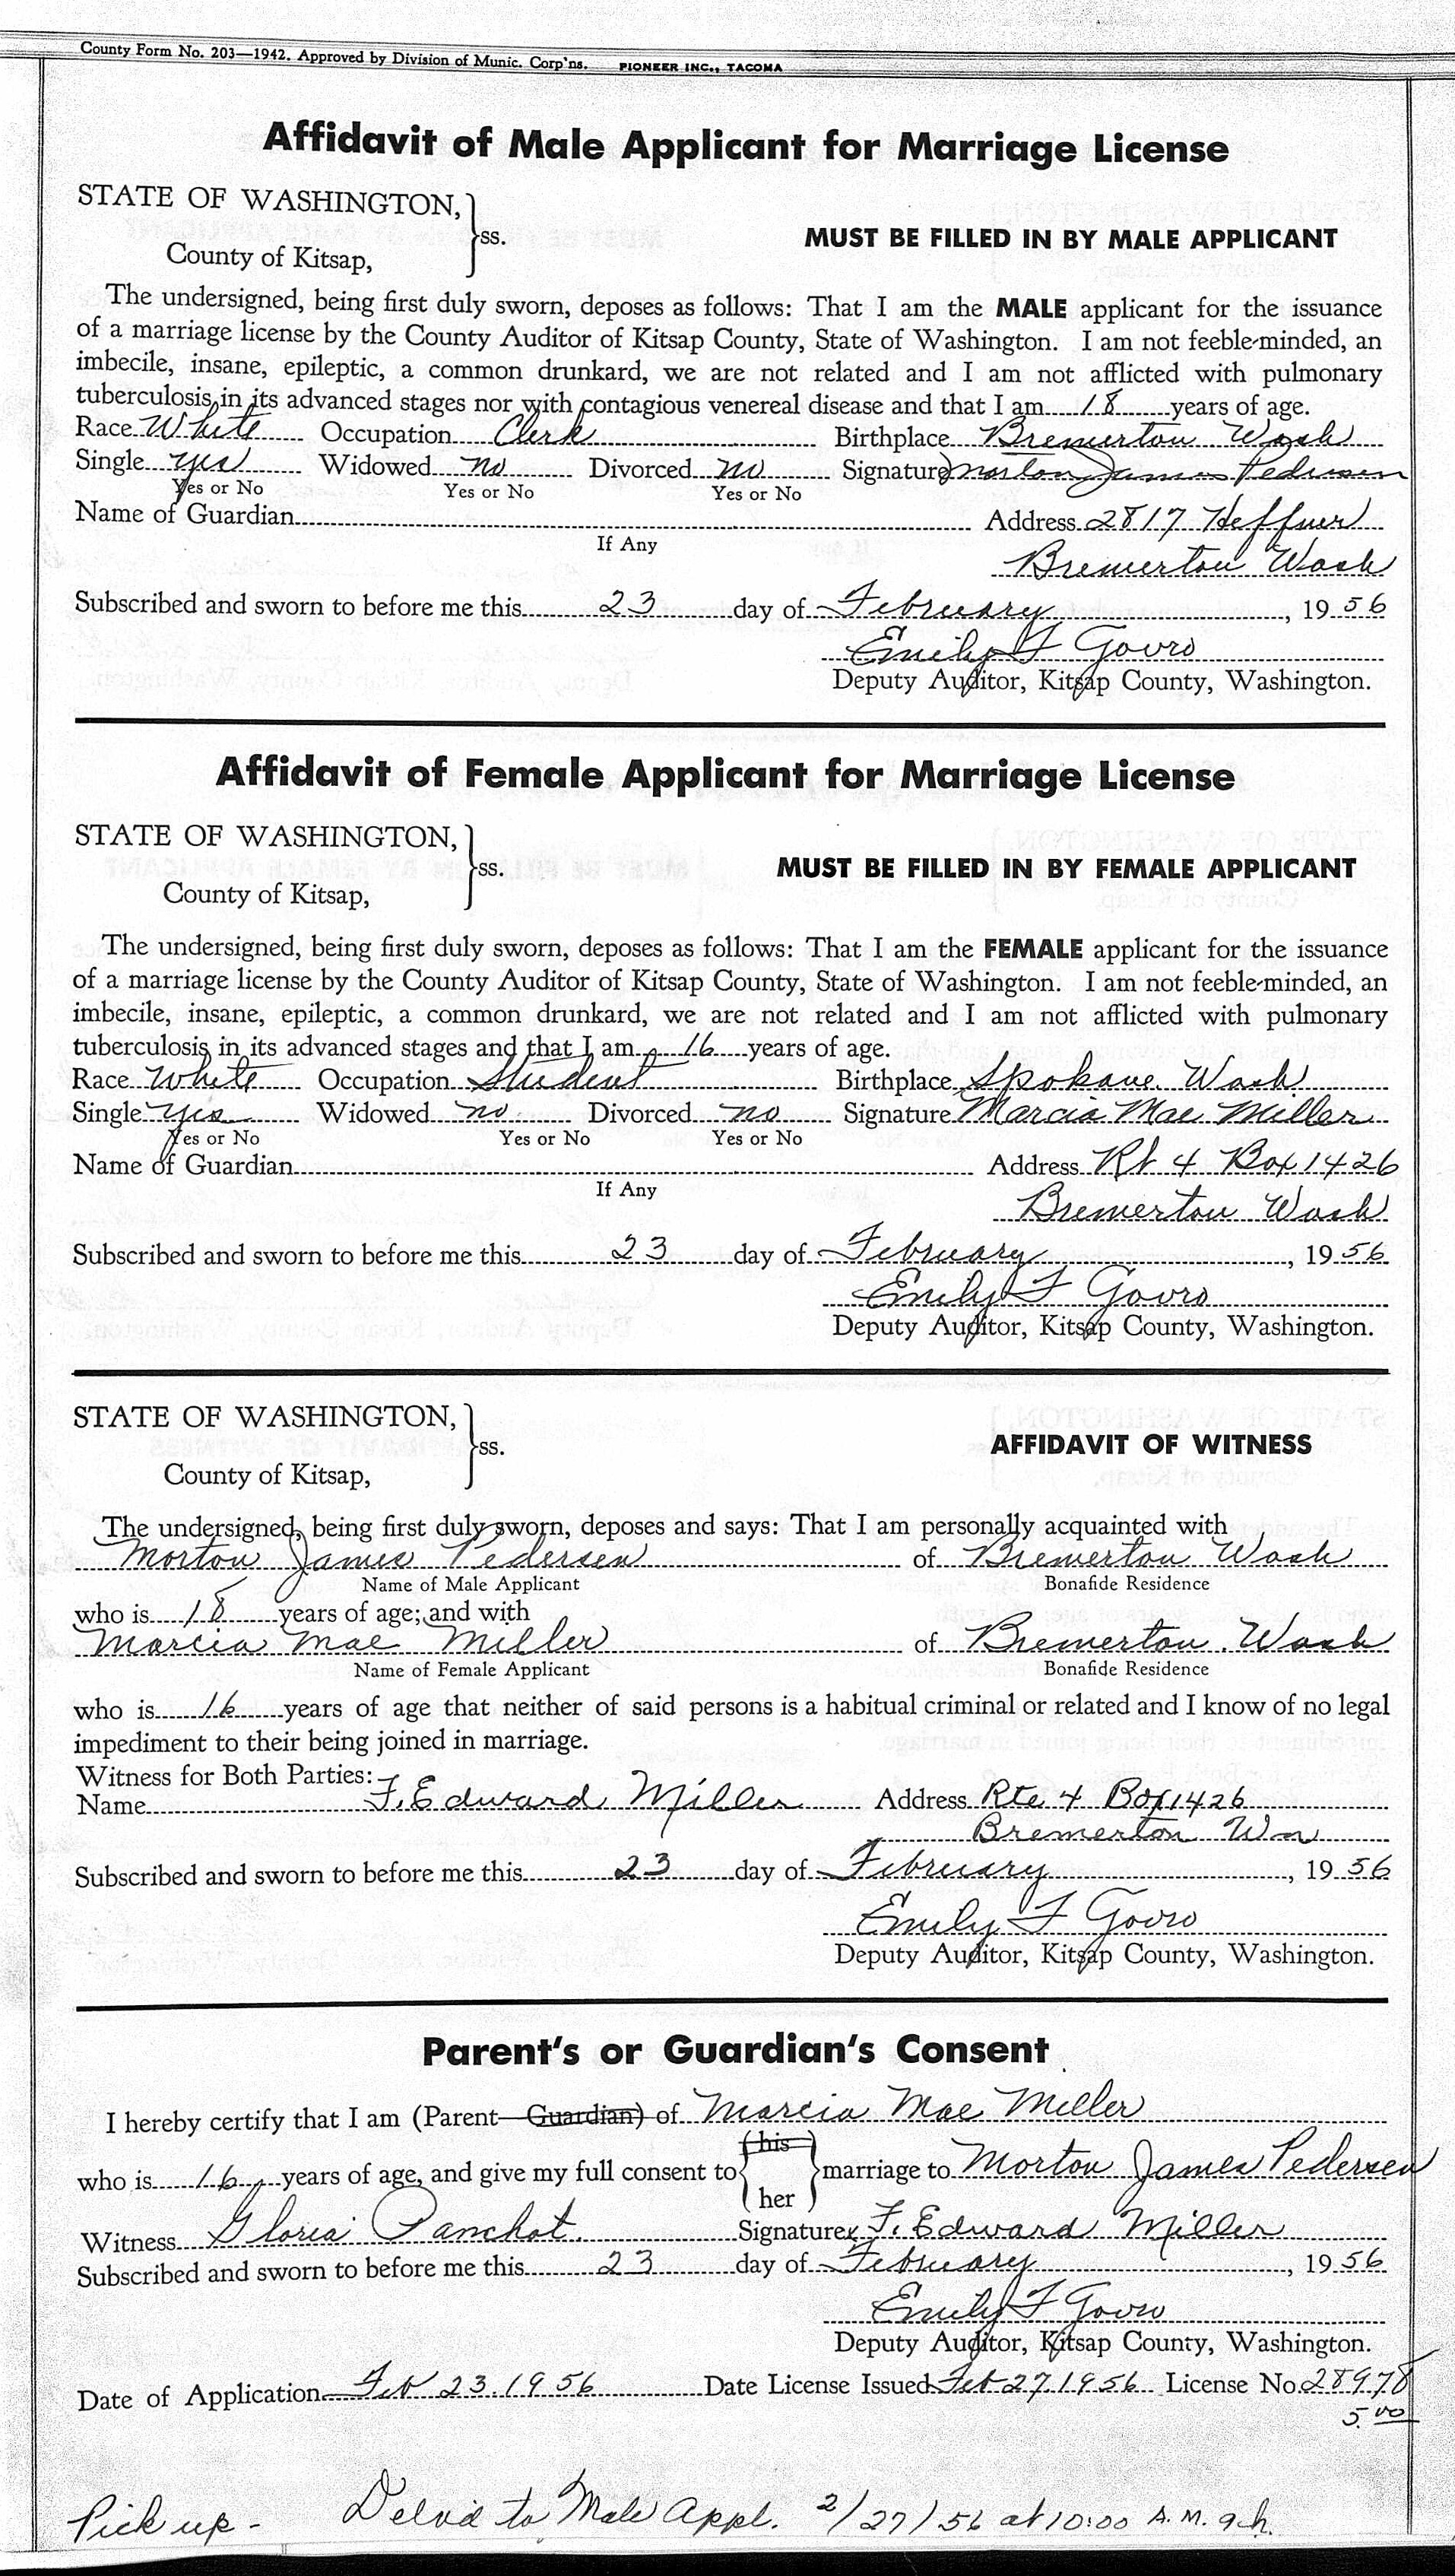 County Form No. 203—1942. Approved by Division of Munic. Corp'ns. PIONEER INC., TACOMA
Affidavit of Male Applicant for Marriage License
STATE OF WASHINGTON,
ss.
MUST BE FILLED IN BY MALE APPLICANT
County of Kitsap,
The undersigned, being first duly sworn, deposes as follows: That I am the MALE applicant for the issuance
of a marriage license by the County Auditor of Kitsap County, State of Washington. I am not feeble-minded, an
imbecile, insane, epileptic, a common drunkard, we are not related and I am not afflicted with pulmonary
tuberculosis in its advanced stages nor with contagious venereal disease and that I am 18 years of age.
Race White Occupation Clerk Birthplace Bremerton Wash
Single yes Widowed no Divorced no Signature Morton James Pedersen
Yes or No Yes or No Yes or No
Name of Guardian Address 2817 Heffner
If Any
Bremerton Wash
Subscribed and sworn to before me this 23 day of February, 1956
Emily F Govro
Deputy Auditor, Kitsap County, Washington.
Affidavit of Female Applicant for Marriage License
STATE OF WASHINGTON,
ss.
MUST BE FILLED IN BY FEMALE APPLICANT
County of Kitsap,
The undersigned, being first duly sworn, deposes as follows: That I am the FEMALE applicant for the issuance
of a marriage license by the County Auditor of Kitsap County, State of Washington. I am not feeble-minded, an
imbecile, insane, epileptic, a common drunkard, we are not related and I am not afflicted with pulmonary
tuberculosis in its advanced stages and that I am 16 years of age.
Race White Occupation Student Birthplace Spokane Wash
Single yes Widowed no Divorced no Signature Marcia Mae Miller
Yes or No Yes or No Yes or No
Name of Guardian Address Rt 4 Box 1426
If Any
Bremerton Wash
Subscribed and sworn to before me this 23 day of February, 1956
Emily F Govro
Deputy Auditor, Kitsap County, Washington.
STATE OF WASHINGTON,
ss.
AFFIDAVIT OF WITNESS
County of Kitsap,
The undersigned, being first duly sworn, deposes and says: That I am personally acquainted with
Morton James Pedersen of Bremerton Wash
Name of Male Applicant Bonafide Residence
who is 18 years of age; and with
Marcia Mae Miller of Bremerton Wash
Name of Female Applicant Bonafide Residence
who is 16 years of age that neither of said persons is a habitual criminal or related and I know of no legal
impediment to their being joined in marriage.
Witness for Both Parties:
Name F. Edward Miller Address Rte 4 Box 1426
Bremerton Wn
Subscribed and sworn to before me this 23 day of February, 1956
Emily F Govro
Deputy Auditor, Kitsap County, Washington.
Parent's or Guardian's Consent
I hereby certify that I am (Parent—Guardian) of Marcia Mae Miller
(his)
who is 16 years of age, and give my full consent to marriage to Morton James Pedersen
(her)
Witness Gloria Panchot Signature x F. Edward Miller
Subscribed and sworn to before me this 23 day of February, 1956
Emily F Govro
Deputy Auditor, Kitsap County, Washington.
Date of Application Feb 23. 1956 Date License Issued Feb 27 1956 License No. 28978
5.00
Pick up - Delv'd to Male Appl. 2/27/56 at 10:00 A.M.